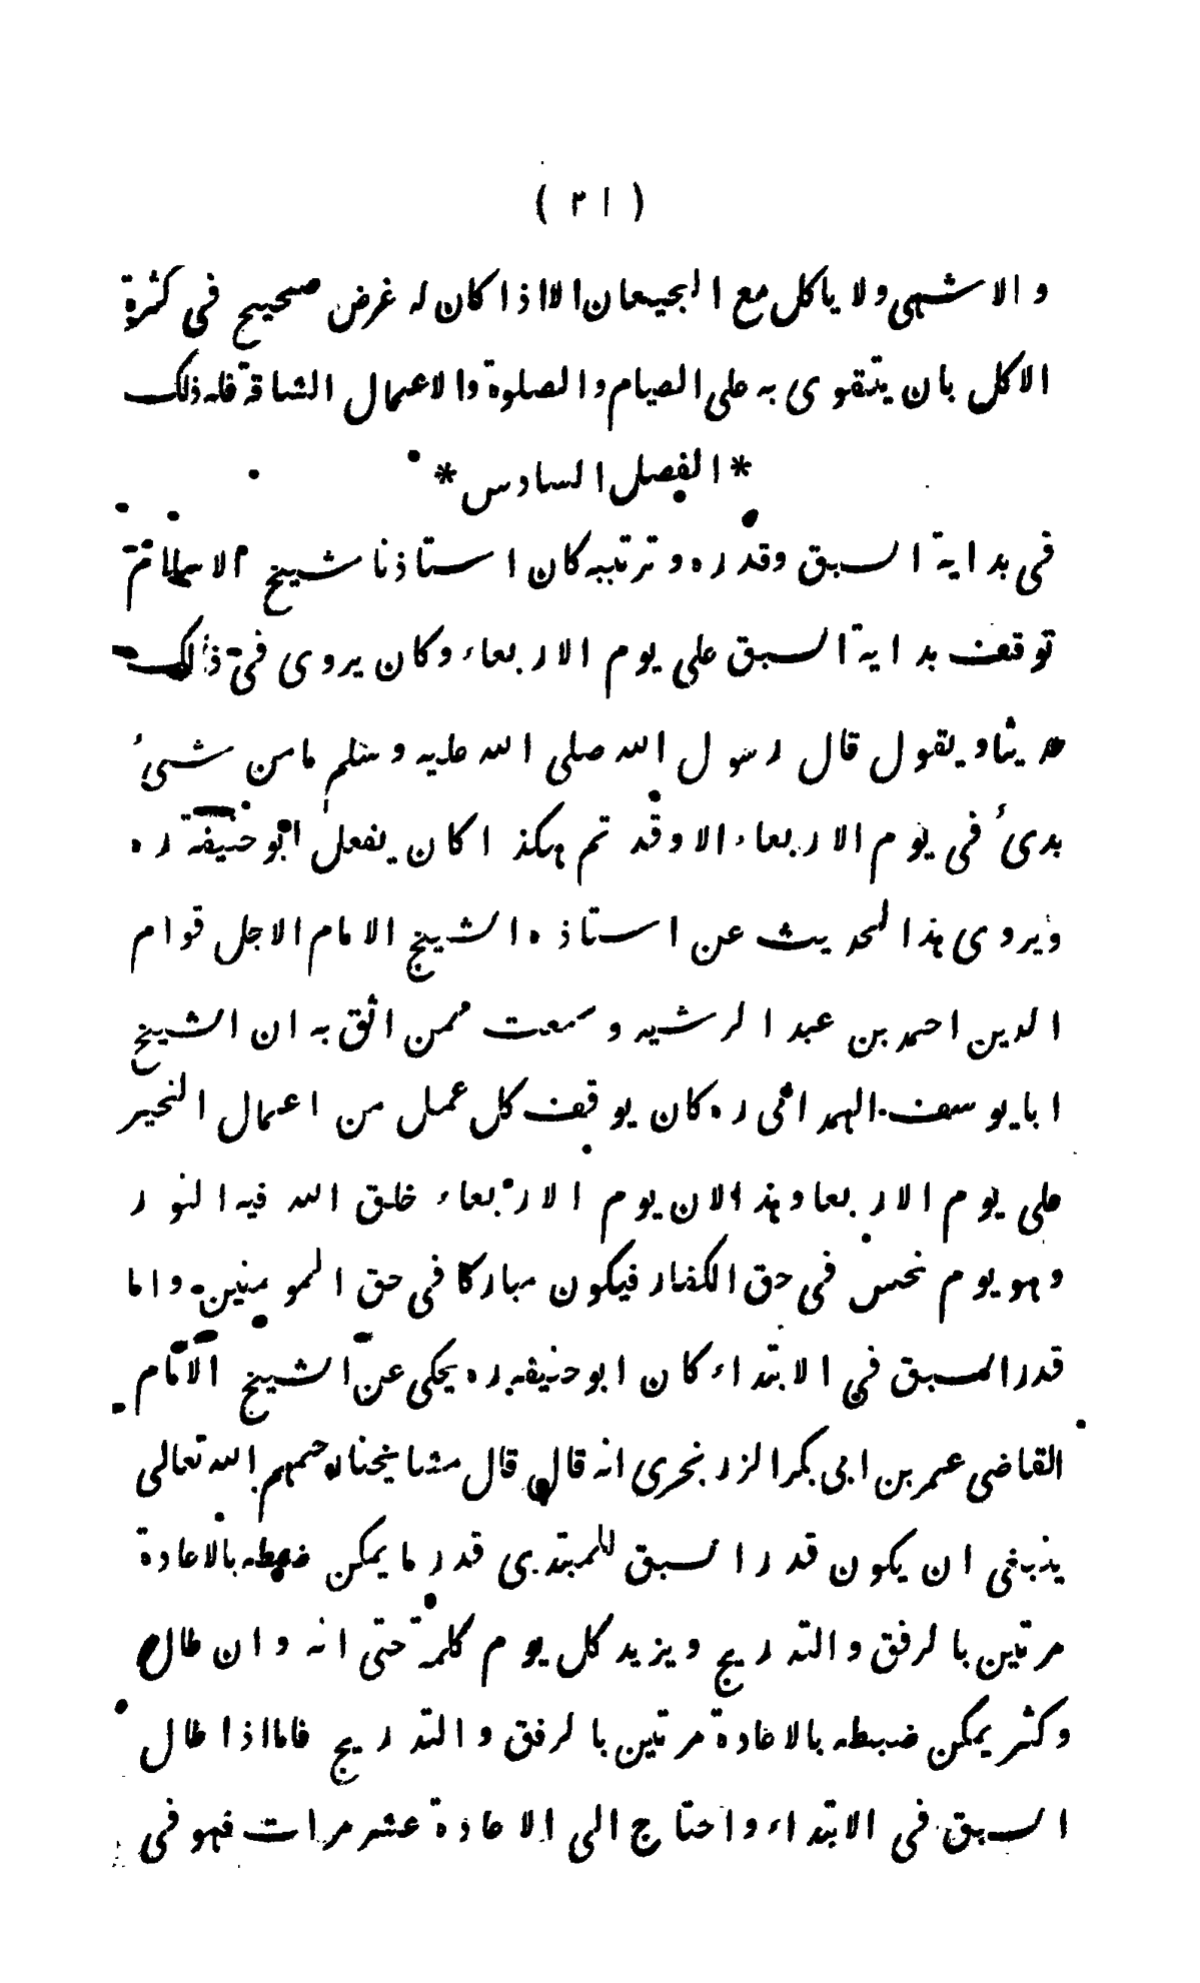 ( ٢١ )
والاشهى ولا ياكل مع الجيعان الا اذا كان له غرض صحيح فى كثرة
الاكل بان يتقوى به على الصيام والصلوة والاعمال الشاقة فله ذلك
* الفصل السادس *
فى بداية السبق وقدره وترتيبه كان استاذنا شيخ الاسلام
توقف بداية السبق على يوم الاربعاء وكان يروى فى ذلك
حديثا ويقول قال رسول الله صلى الله عليه وسلم ما من شىء
بدئ فى يوم الاربعاء الا وقد تم هكذا كان يفعل ابو حنيفة ره
ويروى هذا الحديث عن استاذه الشيخ الامام الاجل قوام
الدين احمد بن عبد الرشيد وسمعت ممن اثق به ان الشيخ
ابا يوسف الهمدانى ره كان يوقف كل عمل من اعمال الخير
على يوم الاربعا وهذا لان يوم الاربعاء خلق الله فيه النور
وهو يوم نحس فى حق الكفار فيكون مباركا فى حق المومنين واما
قدر السبق فى الابتداء كان ابو حنيفه ره يحكى عن الشيخ الامام
القاضى عمر بن ابى بكر الزرنجرى انه قال قال مشايخنا رحمهم الله تعالى
ينبغى ان يكون قدر السبق للمبتدى قدر ما يمكن ضبطه بالاعادة
مرتين بالرفق والتدريج ويزيد كل يوم كلمة حتى انه وان طال
وكثر يمكن ضبطه بالاعادة مرتين بالرفق والتدريج فاما اذا طال
السبق فى الابتداء واحتاج الى الاعادة عشر مرات فهو فى